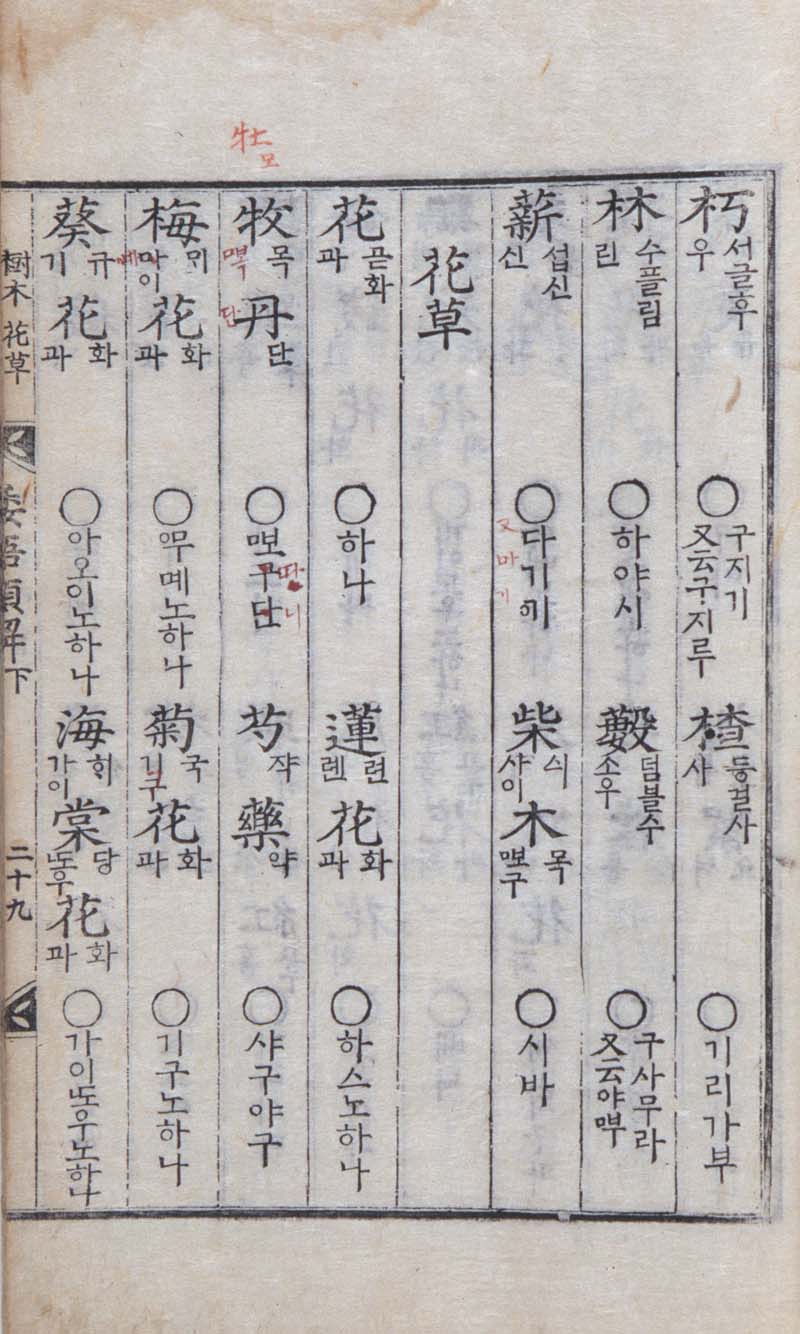 牡
모
朽 서글후 우
○구지기 又云구지루
楂 등걸사 사
○기리가부
林 수플림 린
○하야시
藪 덤블수 소우
○구사무라 又云야
薪 섭신 신
○다기
又 마기
柴 싀 사이
木 목 구
○시바
花草
花 곧화 과
○하나
蓮 련 렌
花 화 과
○하스노하나
牧 목
丹 단
단
○구단
芍 쟉
藥 약
○샤구야구
梅 ᄆᆡ 마이
花 화 과
○무메노하나
菊 국 기구
花 화 과
○기구노하나
葵 규 기
花 화 과
○아오이노하나
海 ᄒᆡ 가이
棠 당
花 화 과
○가이노하나
樹木 花草
倭語類解下
二十九